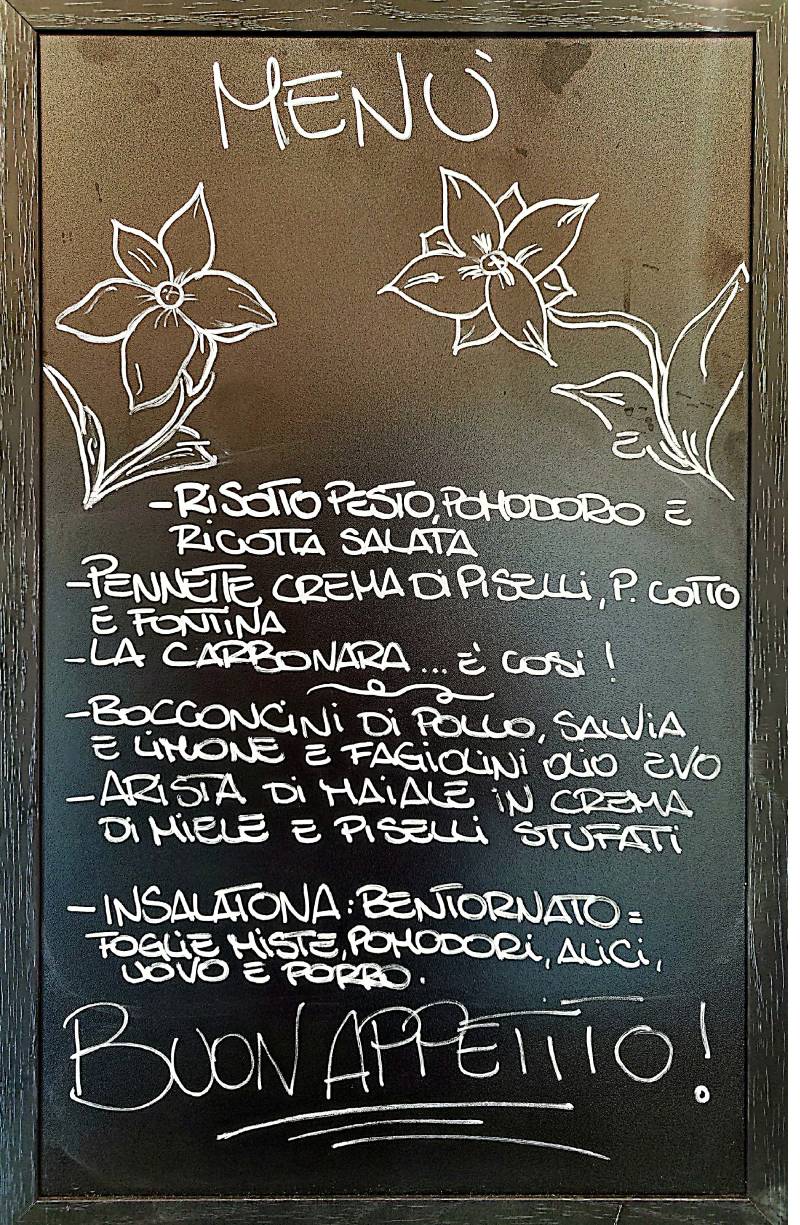 MENÙ
-RISOTTO PESTO, POMODORO E
RICOTTA SALATA
-PENNETTE CREMA Di PISELLi, P. COTTO
E FONTINA
-LA CARBONARA ... E' COSi !
-BOCCONCiNi Di POLLO, SALViA
E LiMONE E FAGiOLiNi OLiO EVO
-ARiSTA Di MAiALE iN CREMA
Di MiELE E PiSELLi STUFATi
-INSALATONA: BENTORNATO =
FOGLiE MiSTE, POMODORi, ALiCi,
UOVO E PORRO.
BUON APPETITO!